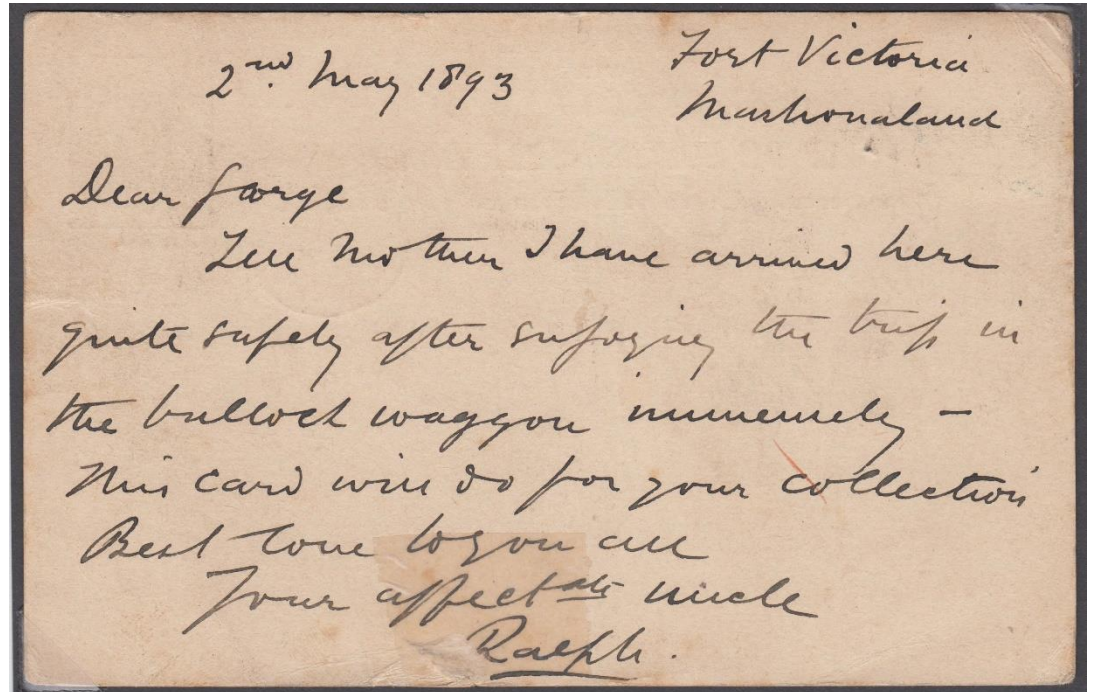 Fort Victoria
2nd. May 1893
Mashonaland
Dear George
Tell Mother I have arrived here
quite safely after enjoying the trip in
the bullock waggon immensely –
This card will do for your collection
Best love to you all
Your affectate uncle
Ralph.